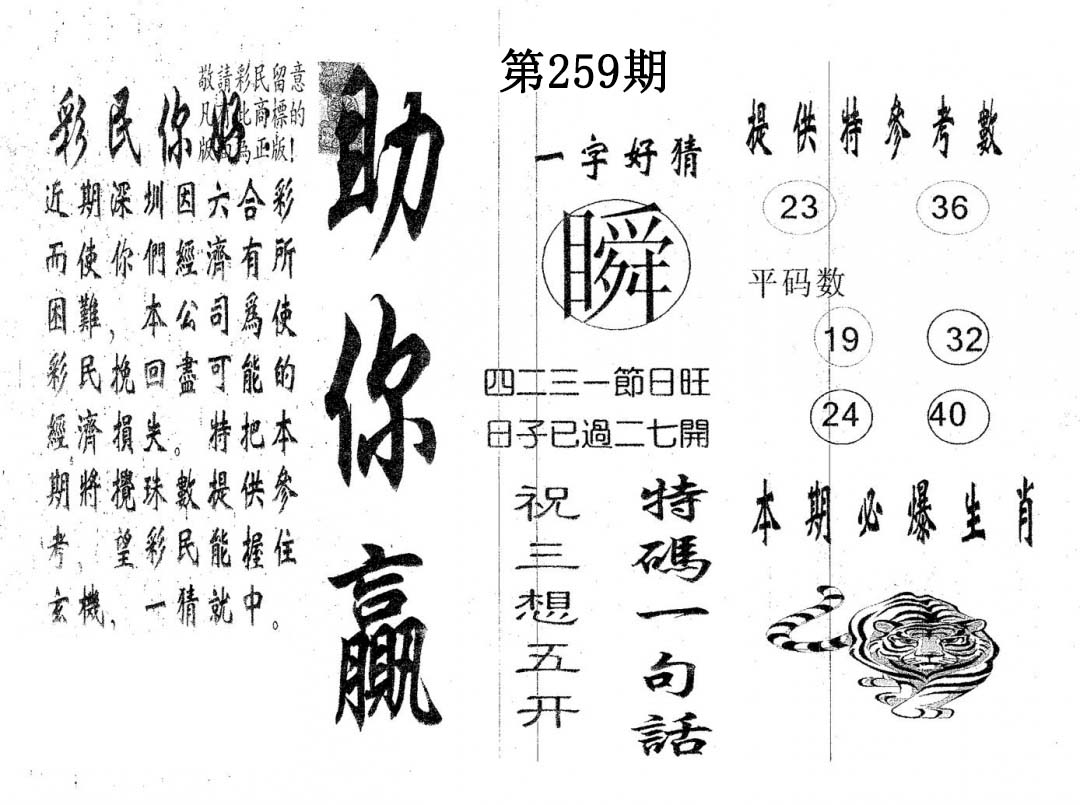 第259期
敬請彩民留意
凡 此商標的
版 為正版!
彩民你好
近期深圳因六合彩
而使你們經濟有所
困難,本公司爲使
彩民挽回盡可能的
經濟損失。特把本
期將攪珠數提供參
考,望彩民能握住
玄機,一猜就中。
助你贏
一字好猜
瞬
四二三一節日旺
日子已過二七開
特碼一句話
祝三想五开
提供特参考數
23 36
平码数
19 32
24 40
本期必爆生肖